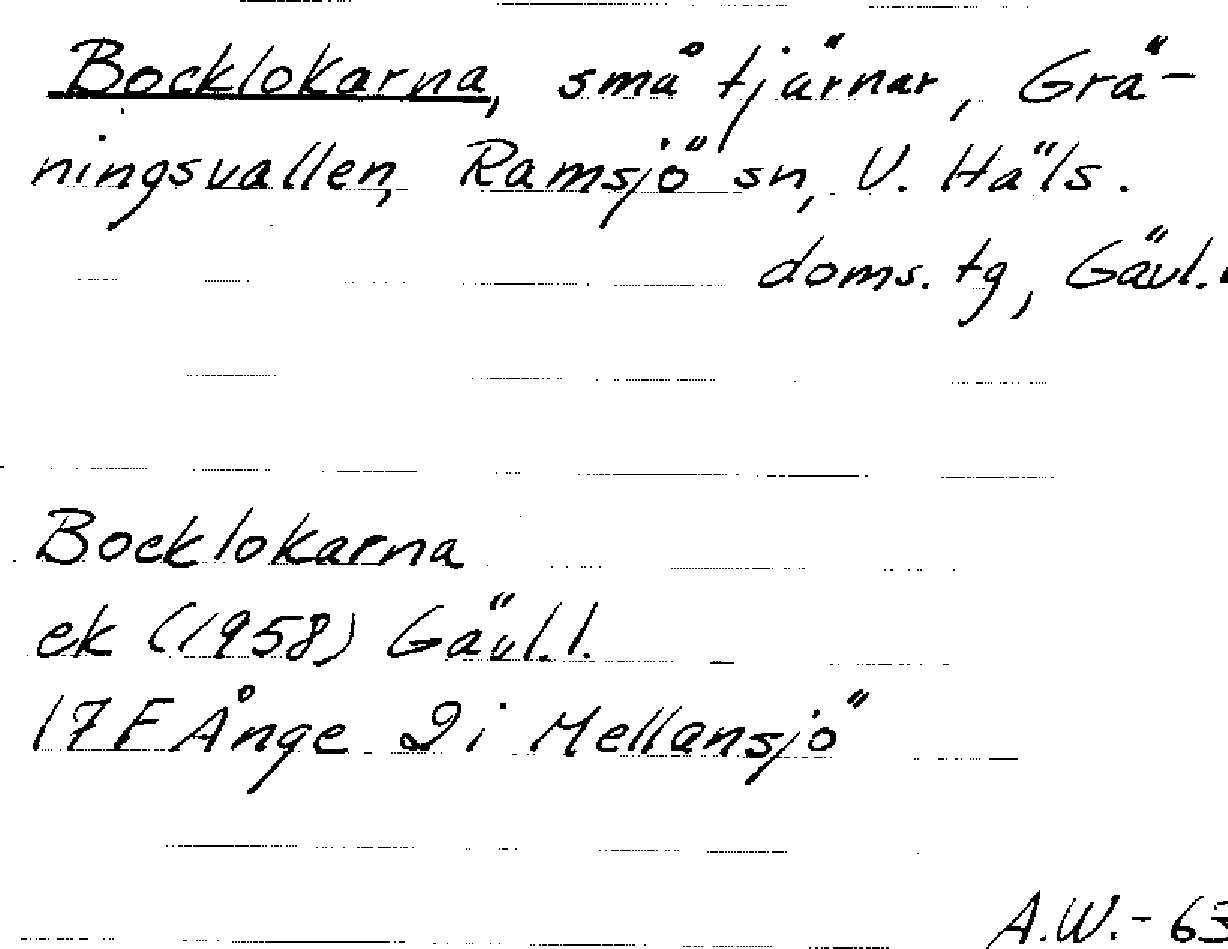 Bocklokarna, små tjärnar, Grä-
ningsvallen, Ramsjö sn, V. Häls.
doms. tg, Gävl.
Bocklokarna
ek (1958) Gävl.l.
17F Ånge 2i Mellansjö
A.W.-63